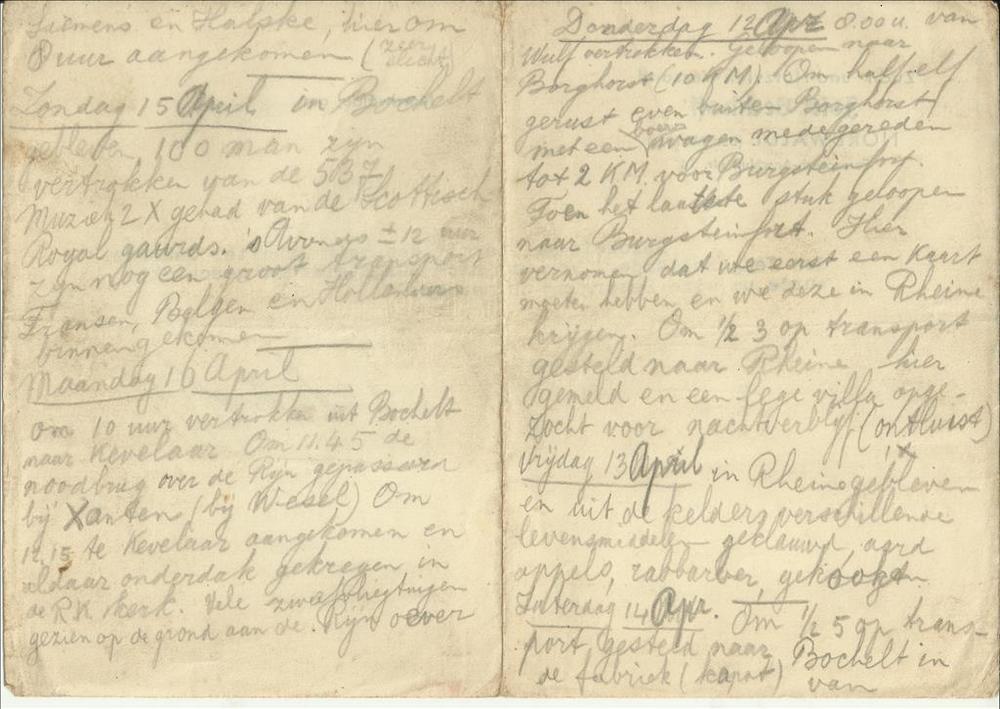 Siemens en Halske, hier om
8 uur aangekomen (zeer
slecht)
Zondag 15 April in Bochelt
gebleven, 100 man zijn
vertrokken van de 537
Muziek 2 X gehad van de Scottisch
Royal gaurds. 's Avonds ± 12 uur
zijn nog een groot transport
Fransen, Belgen en Hollanders
binnengekomen
Maandag 16 April
om 10 uur vertrokken uit Bochelt
naar Kevelaar Om 11.45 de
noodbrug over de Rijn gepasseerd
bij Xanten (bij Wesel) Om
12,15 te Kevelaar aangekomen en
aldaar onderdak gekregen in
de RK kerk. Vele zweefvliegtuigen
gezien op de grond aan de Rijn oever
Donderdag 12 Apr 8.00 u. van
Wulf vertrokken. Geloopen naar
Borghorst (10 KM). Om half elf
gerust even buiten Borghorst
met een boeren wagen medegereden
tot 2 KM. voor Burgsteinfort.
Toen het laatste stuk geloopen
naar Burgsteinfort. Hier
vernomen dat we eerst een kaart
moeten hebben en we deze in Rheine
krijgen. Om 1/2 3 op transport
gesteld naar Rheine hier
gemeld en een lege villa opge-
zocht voor nachtverblijf (ontluist)
Vrijdag 13 April in Rheine gebleven
en uit de kelders verschillende
levensmiddelen geclauwd, aard
appels, rabbarber, gekookt
Zaterdag 14 Apr. Om 1/2 5 op trans-
port gesteld naar Bochelt in
de fabriek (kapot) van